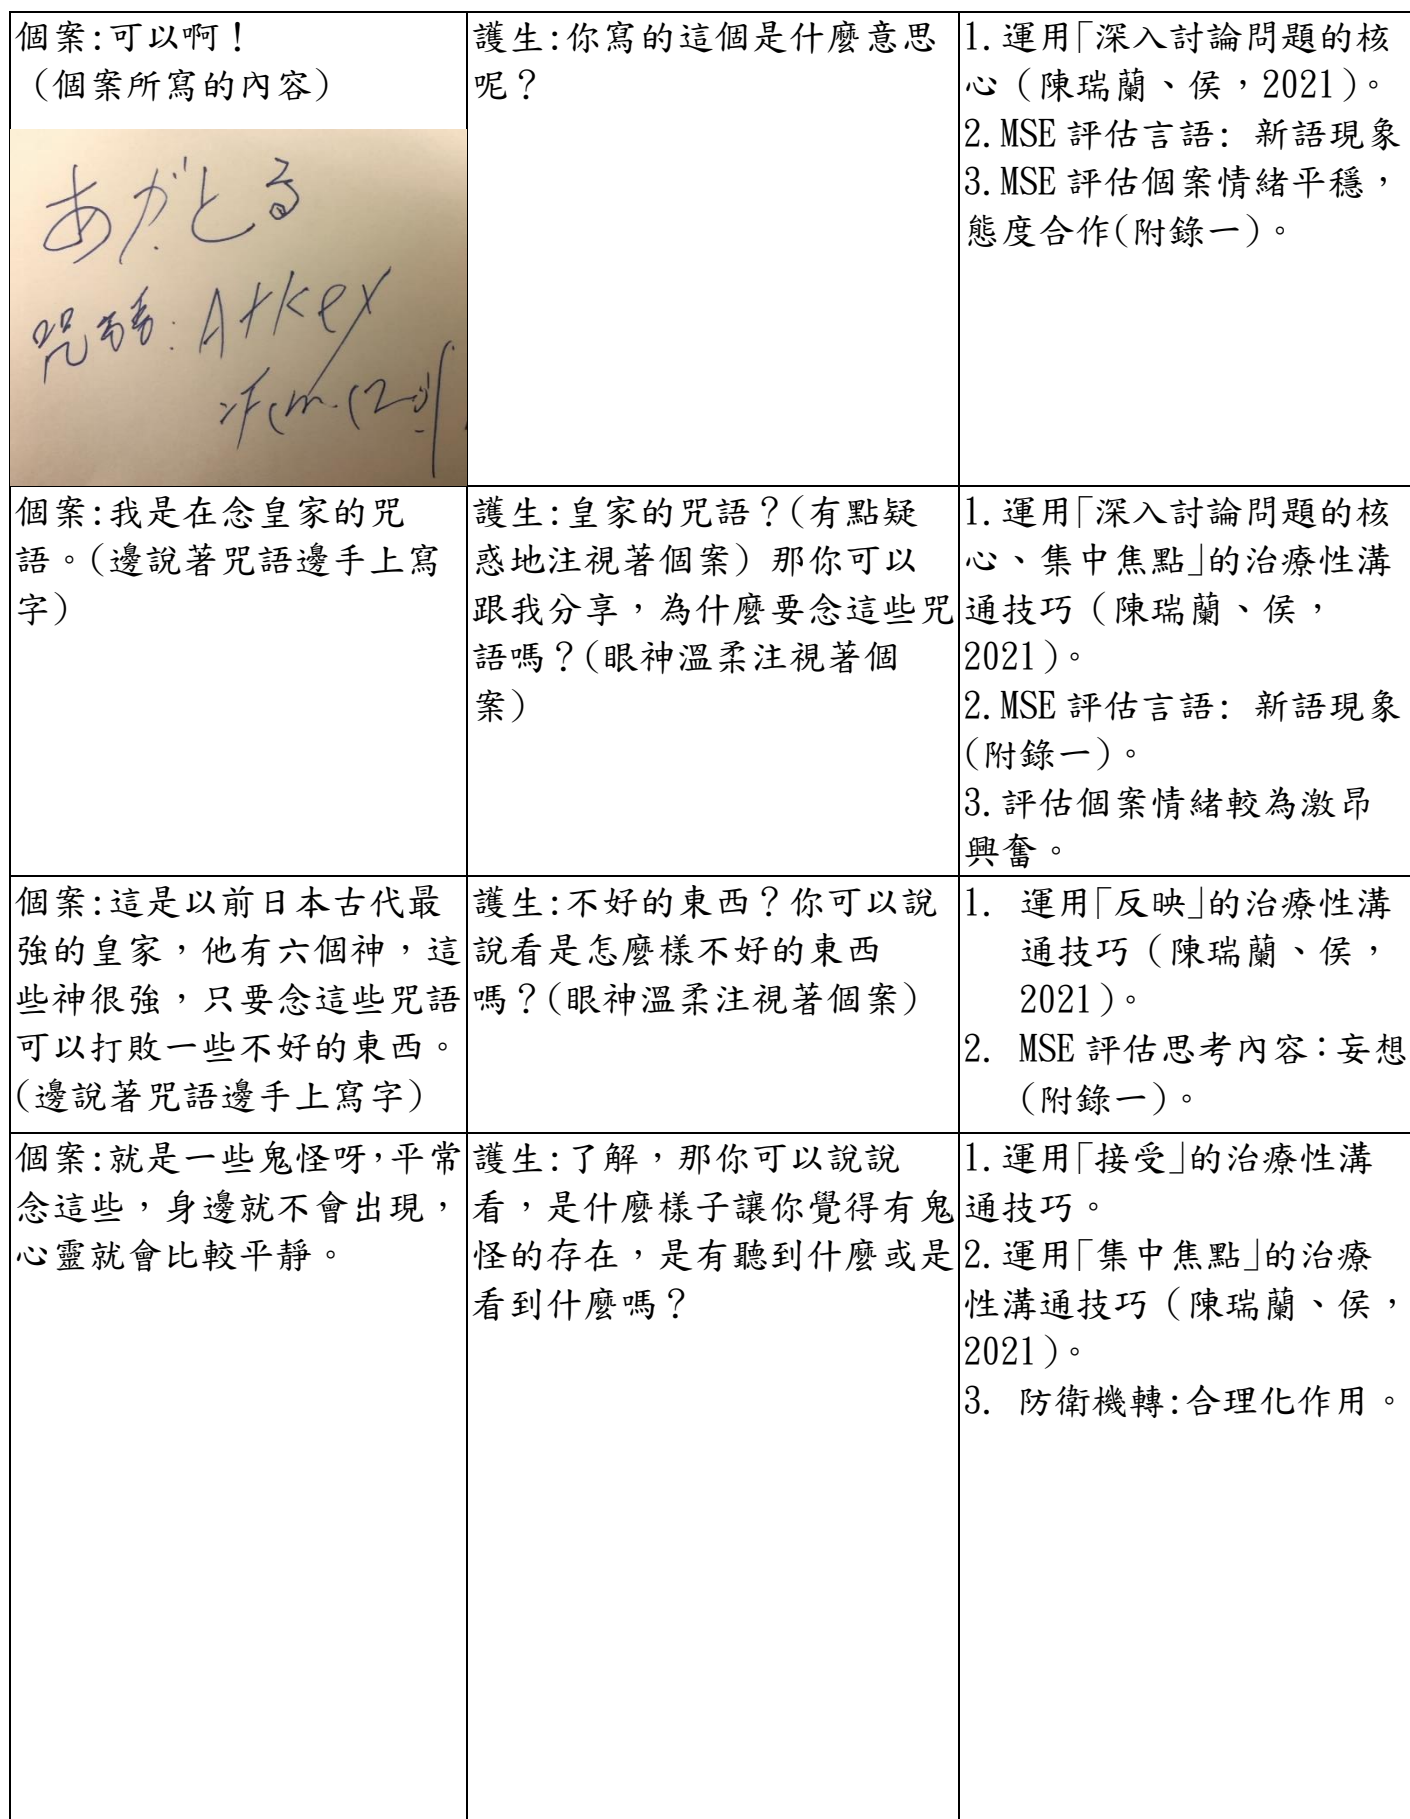 個案:可以啊！
（個案所寫的內容）
あがとる
咒語: Atkex
護生:你寫的這個是什麼意思
呢？
1.運用「深入討論問題的核
心（陳瑞蘭、侯，2021）。
2.MSE 評估言語: 新語現象
3.MSE 評估個案情緒平穩，
態度合作(附錄一)。
個案:我是在念皇家的咒
語。(邊說著咒語邊手上寫
字)
護生:皇家的咒語？(有點疑
惑地注視著個案) 那你可以
跟我分享，為什麼要念這些咒
語嗎？(眼神溫柔注視著個
案)
1.運用「深入討論問題的核
心、集中焦點」的治療性溝
通技巧（陳瑞蘭、侯，
2021）。
2.MSE 評估言語: 新語現象
(附錄一)。
3.評估個案情緒較為激昂
興奮。
個案:這是以前日本古代最
強的皇家，他有六個神，這
些神很強，只要念這些咒語
可以打敗一些不好的東西。
(邊說著咒語邊手上寫字)
護生:不好的東西？你可以說
說看是怎麼樣不好的東西
嗎？(眼神溫柔注視著個案)
1. 運用「反映」的治療性溝
通技巧（陳瑞蘭、侯，
2021）。
2. MSE 評估思考內容：妄想
(附錄一)。
個案:就是一些鬼怪呀,平常
念這些，身邊就不會出現，
心靈就會比較平靜。
護生:了解，那你可以說說
看，是什麼樣子讓你覺得有鬼
怪的存在，是有聽到什麼或是
看到什麼嗎？
1.運用「接受」的治療性溝
通技巧。
2.運用「集中焦點」的治療
性溝通技巧（陳瑞蘭、侯，
2021）。
3. 防衛機轉:合理化作用。